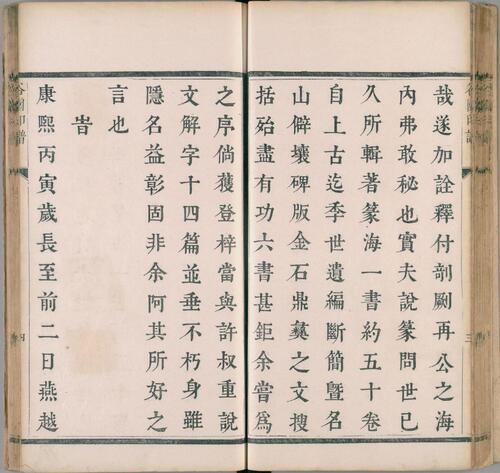 哉遂加詮釋付剞劂再公之海
內弗敢秘也實夫說篆問世已
久所輯著篆海一書約五十卷
自上古迄季世遺編斷簡曁名
山僻壤碑版金石鼎彜之文搜
括殆盡有功六書甚鉅余嘗爲
之序倘獲登梓當與許叔重說
文解字十四篇並垂不朽身雖
隱名益彰固非余阿其所好之
言也
旹
康熙丙寅歲長至前二日燕越
谷園印譜
三
四